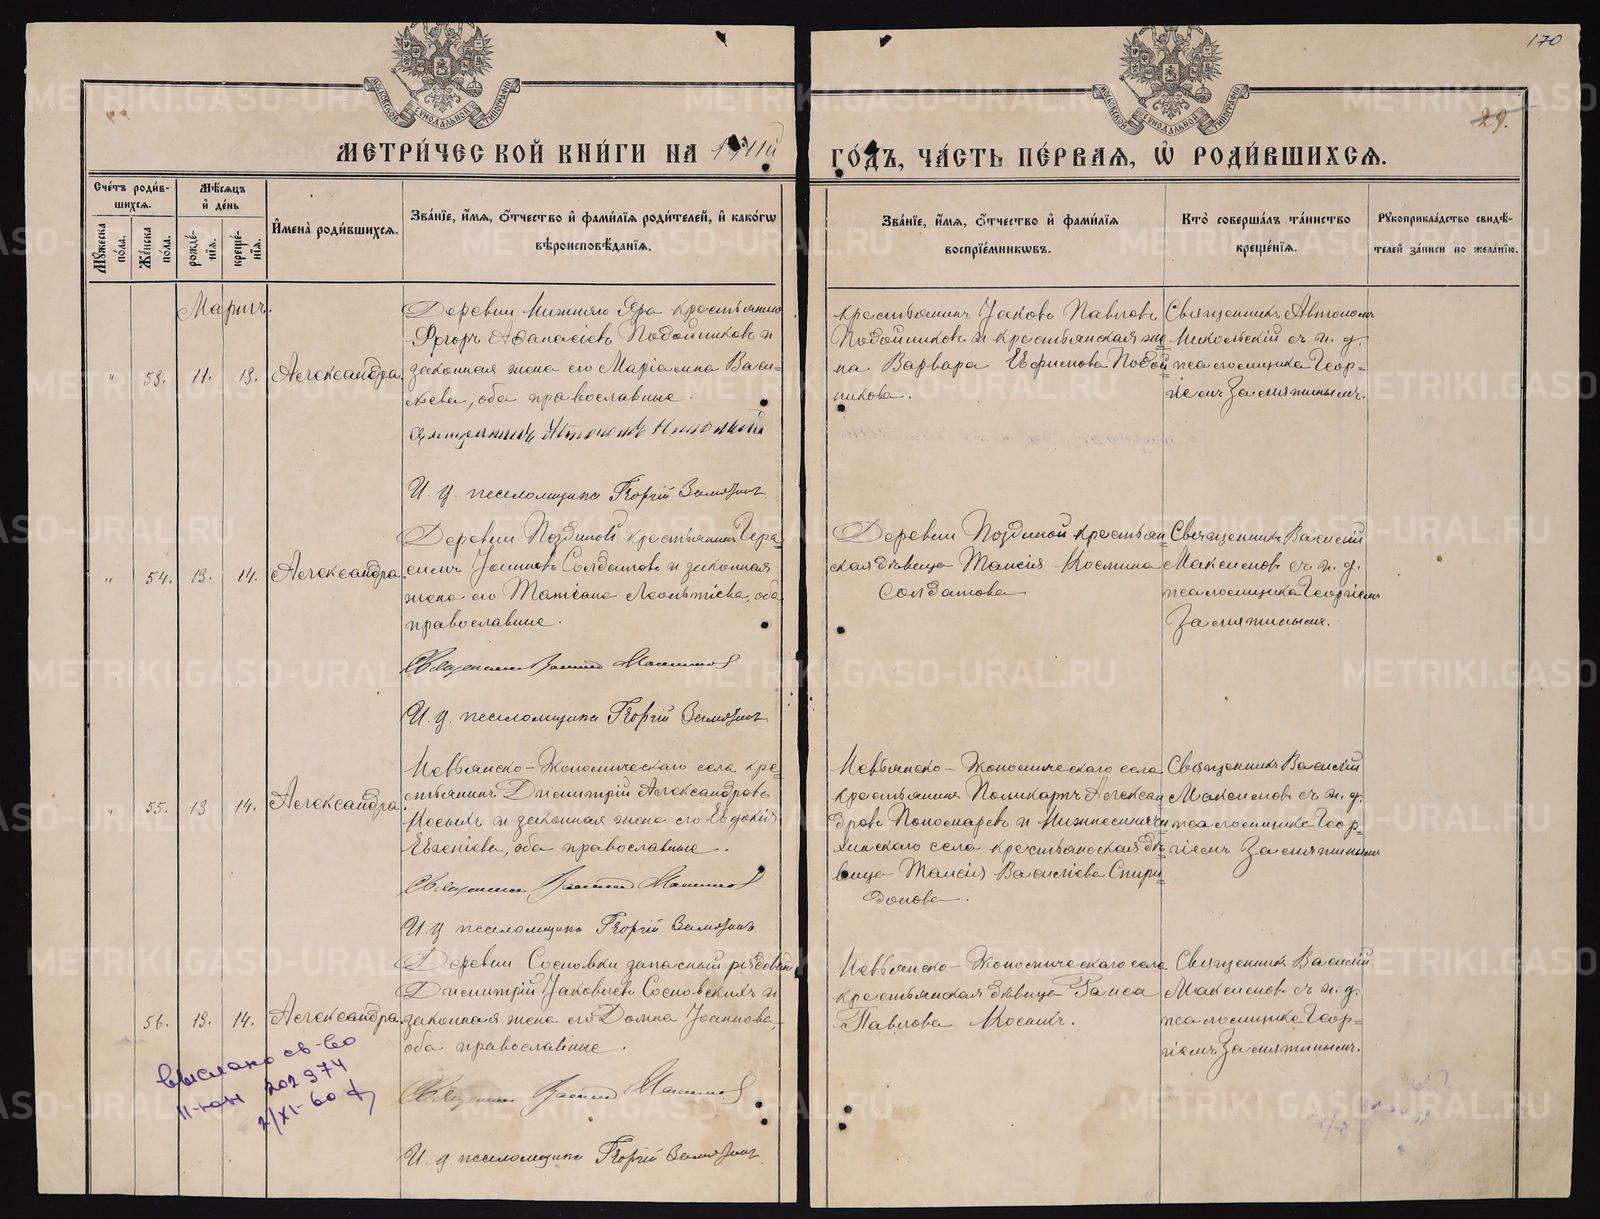 170
29.
МОСКОВСКОЙ СѴНОДАЛЬНОЙ ТИПОГРАФІИ
МОСКОВСКОЙ СѴНОДАЛЬНОЙ ТИПОГРАФІИ
МЕТРИ́ЧЕСКОЙ КНИ́ГИ НА 1911й
ГО́ДЪ, ЧА́СТЬ ПЕ́РВАЯ, Ѡ҆ РОДИ́ВШИХСЯ.
Сче́тъ роди́в-
шихся.
Мꙋжеска по́ла.
Же́нска по́ла.
Мѣ́сяцъ и҆ де́нь
рожде́-
нїя.
креще́-
нїя.
И҆мена̀ роди́вшихся.
Зва́нїе, и҆́мя, ѻ҆́тчество и҆ фами́лїя роди́телей, и҆ како́гѡ
вѣроисповѣ́данїя.
Зва́нїе, и҆́мя, ѻ҆́тчество и҆ фами́лїя
воспрїе́мникѡвъ.
Кто̀ соверша́лъ та́инство
креще́нїя.
Рꙋкоприкла́дство свидѣ́-
телей за́писи по жела́нїю.
Мартъ.
" 53. 11. 13. Александра.
Деревни Нижняго Яра крестьянинъ
Ѳаноасіевъ Подойниковъ и
законная жена его Маріамна Васи-
льева, оба православные.
Священникъ Автономъ Никольскій
И. д. псаломщика Георгій Замятинъ
крестьянинъ Іаковъ Павловъ
Подойниковъ и крестьянская же-
на Варвара Ефимова Подой-
никова.
Священникъ Автономъ
Никольскій съ и. д.
псаломщика Геор-
гіемъ Замятинымъ.
" 54. 13. 14. Александра.
Деревни Поздиной крестьянинъ Гера-
симъ Іоанновъ Солдатовъ и законная
жена его Татіана Леонтіева, оба
православные.
Священникъ Василій Максимовъ
И. д. псаломщика Георгій Замятинъ
Деревни Поздиной крестьян-
ская дѣвица Таисія Космина
Солдатова
Священникъ Василій
Максимовъ съ и. д.
псаломщика Георгіемъ
Замятинымъ.
" 55. 13 14. Александра.
Невьянско-Экономическаго села кре-
стьянинъ Димитрій Александровъ
Косыхъ и законная жена его Евдокія
Евгеніева, оба православные.
Священникъ Василій Максимовъ
И. д. псаломщика Георгій Замятинъ
Невьянско-Экономическаго села
крестьянинъ Поликарпъ Алексан-
дровъ Пономаревъ и Нижнесиня-
чихинскаго села крестьянская дѣ-
вица Таисія Василіева Спири-
донова.
Священникъ Василій
Максимовъ съ и. д.
псаломщика Геор-
гіемъ Замятинымъ
56. 13. 14. Александра.
Деревни Сосновки запасный рядовой
Димитрій Іаковлевъ Сосновскихъ и
законная жена его Домна Іоаннова,
оба православные.
Священникъ Василій Максимовъ
И. д. псаломщика Георгій Замятинъ
Невьянско-Экономическаго села
крестьянская дѣвица Раиса
Павлова Косыхъ.
Священникъ Василій
Максимовъ съ и. д.
псаломщика Геор-
гіемъ Замятинымъ.
выслано св-во
II-юн 202974
2/XI-60
METRIKI.GASO-URAL.RU